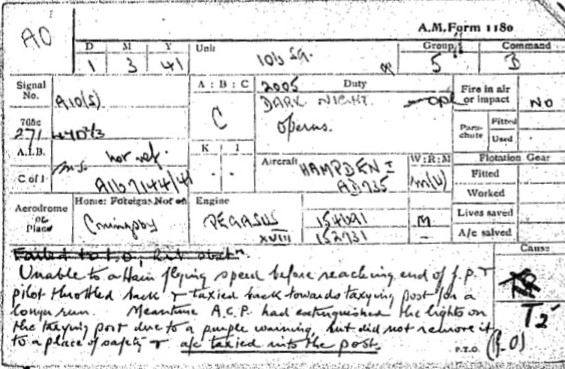 A.M. Form 1180
AO
D M Y Unit Group Command
1 3 41 106 Sq. 5 B
Signal No. A10(S) A : B : C 2005 Duty Fire in air or impact NO
C DARK NIGHT
Opera​ns.
705c
271
Parachute Fitted
Used
A.I.B. not ref. K I Aircraft HAMPDEN I W : R : M Flotation Gear
AD735 M(U) Fitted
C of I Worked
Aerodrome or Place Home: Foreign: Not on Engine Lives saved
Coningsby PEGASUS M A/c salved
XVIII 152731 –
Cause
Failed to t.o.,
Unable to attain flying speed before reaching end of f.p. &
pilot throttled back & taxied back towards taxying post for a
longer run. Meantime A.C.P. had extinguished the lights on
the taxying post due to a purple warning, but did not remove it
to a place of safety & a/c taxied into the post.
T2
P.T.O.